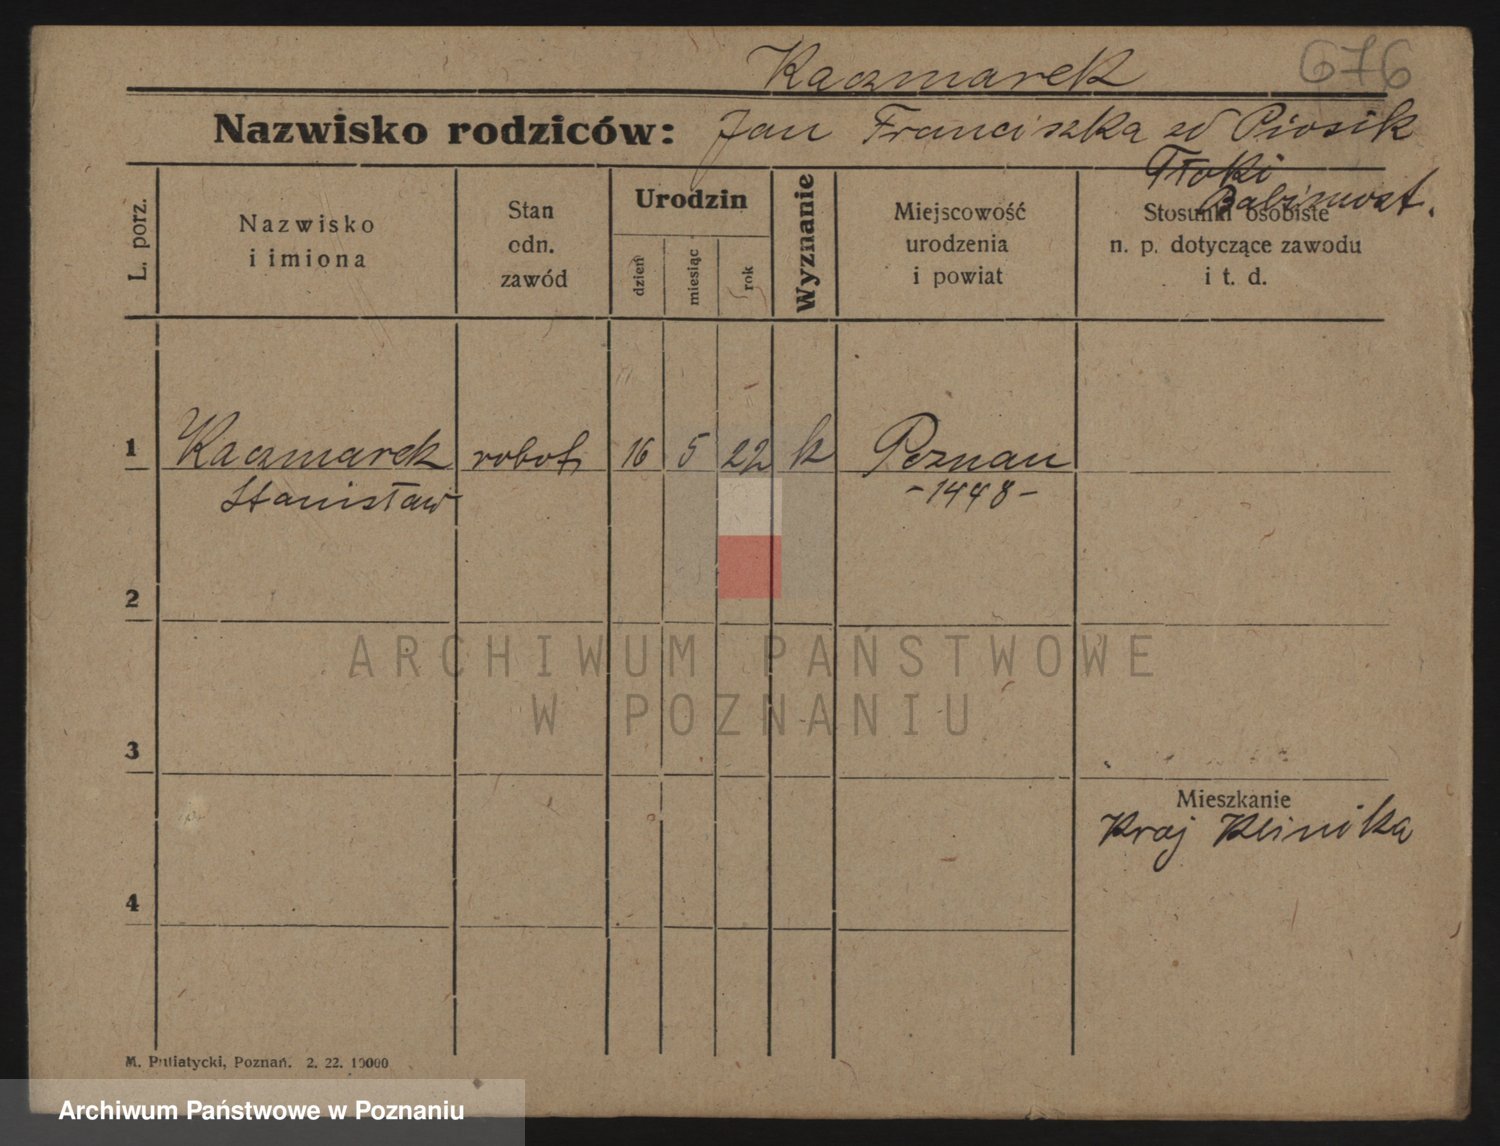 Kaczmarek
676
Nazwisko rodziców: Jan Franciszka zd Piosik
Tłoki
Babimost.
L. porz.
Nazwisko
i imiona
Stan
odn.
zawód
Urodzin
dzień
miesiąc
rok
Wyznanie
Miejscowość
urodzenia
i powiat
Stosunki osobiste
n. p. dotyczące zawodu
i t. d.
1 Kaczmarek robot. 16 5 22 k Poznań
Stanisław -1448-
2
ARCHIWUM PAŃSTWOWE
W POZNANIU
3
Mieszkanie
Kraj Klinika
4
M. Putiatycki, Poznań. 2. 22. 10000
Archiwum Państwowe w Poznaniu